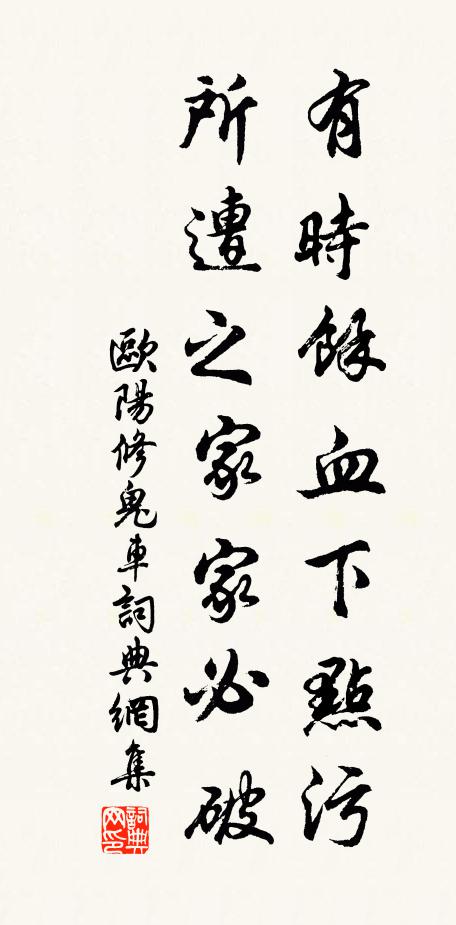 有時餘血下點污
所遭之家家必破
歐陽修鬼車詞典網集
詞典網印